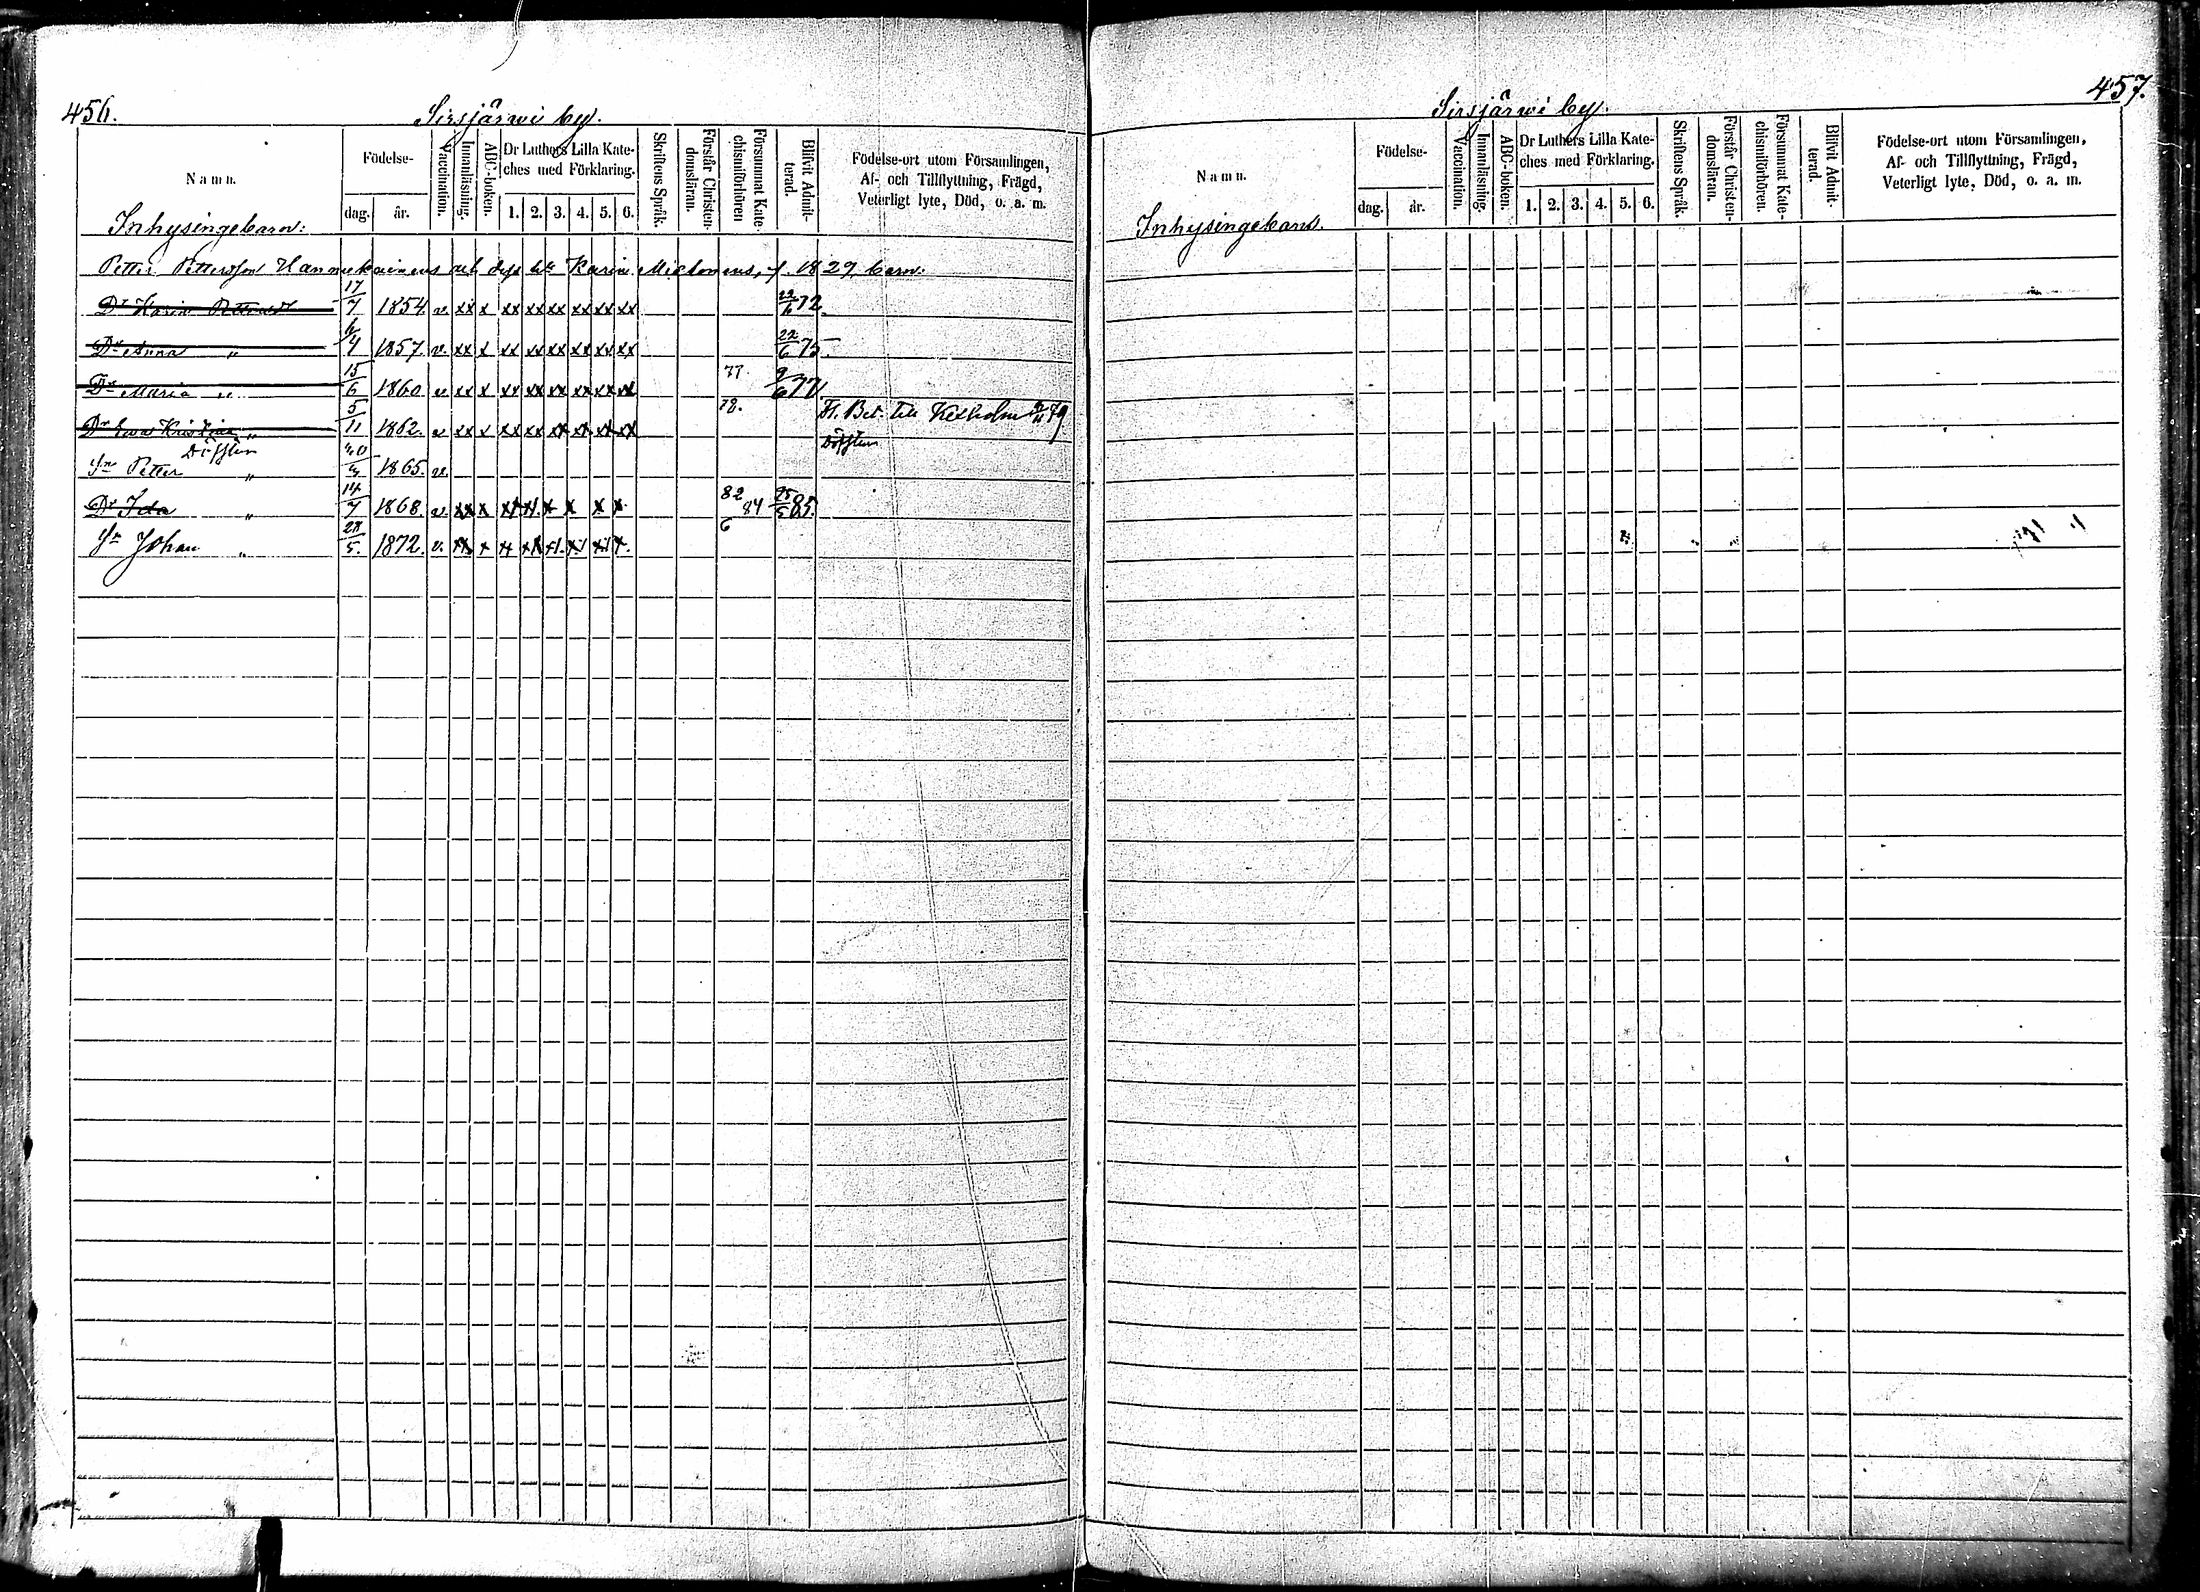 456.
Sirsjärwi by.
Namn.
Födelse-
dag.
år.
Vaccination.
Innanläsning.
ABC-boken.
Dr Luthers Lilla Kate-
ches med Förklaring.
1. 2. 3. 4. 5. 6.
Skriftens Språk.
Förstår Christen-
domsläran.
Försummat Kate-
chismiförhören
Blifvit Admit-
terad.
Födelse-ort utom Församlingen,
Af- och Tillflyttning, Frägd,
Veterligt lyte, Död, o. a. m.
Inhysingebarn:
Petter Pettersson Hannukainens och dess h. Karin f. 1829, barn:
Dr Karin 17/7 1854. v. xx x xx xx xx xx xx xx 22/6 72.
Dr Anna " 6/4 1857. v. xx x xx xx xx xx xx xx 22/6 75.
Dr Maria " 15/6 1860 v xx x xx xx xx xx xx xx 77. 9/6 77.
Dr Ewa Kristina " 5/11 1862. v xx x xx xx xx xx xx xx 78. Fl. Bet. till Kexholm 79
Sn Petter " 1865. v.
Dr Ida " 14/7 1868. v. xx x x x x x 82 84 25/5 85.
Sn Johan " 28/5. 1872. v. x 6
457.
Sirsjärwi by.
Namn.
Födelse-
dag.
år.
Vaccination.
Innanläsning.
ABC-boken.
Dr Luthers Lilla Kate-
ches med Förklaring.
1. 2. 3. 4. 5. 6.
Skriftens Språk.
Förstår Christen-
domsläran.
Försummat Kate-
chismiförhören.
Blifvit Admit-
terad.
Födelse-ort utom Församlingen,
Af- och Tillflyttning, Frägd,
Veterligt lyte, Död, o. a. m.
Inhysingebarn.